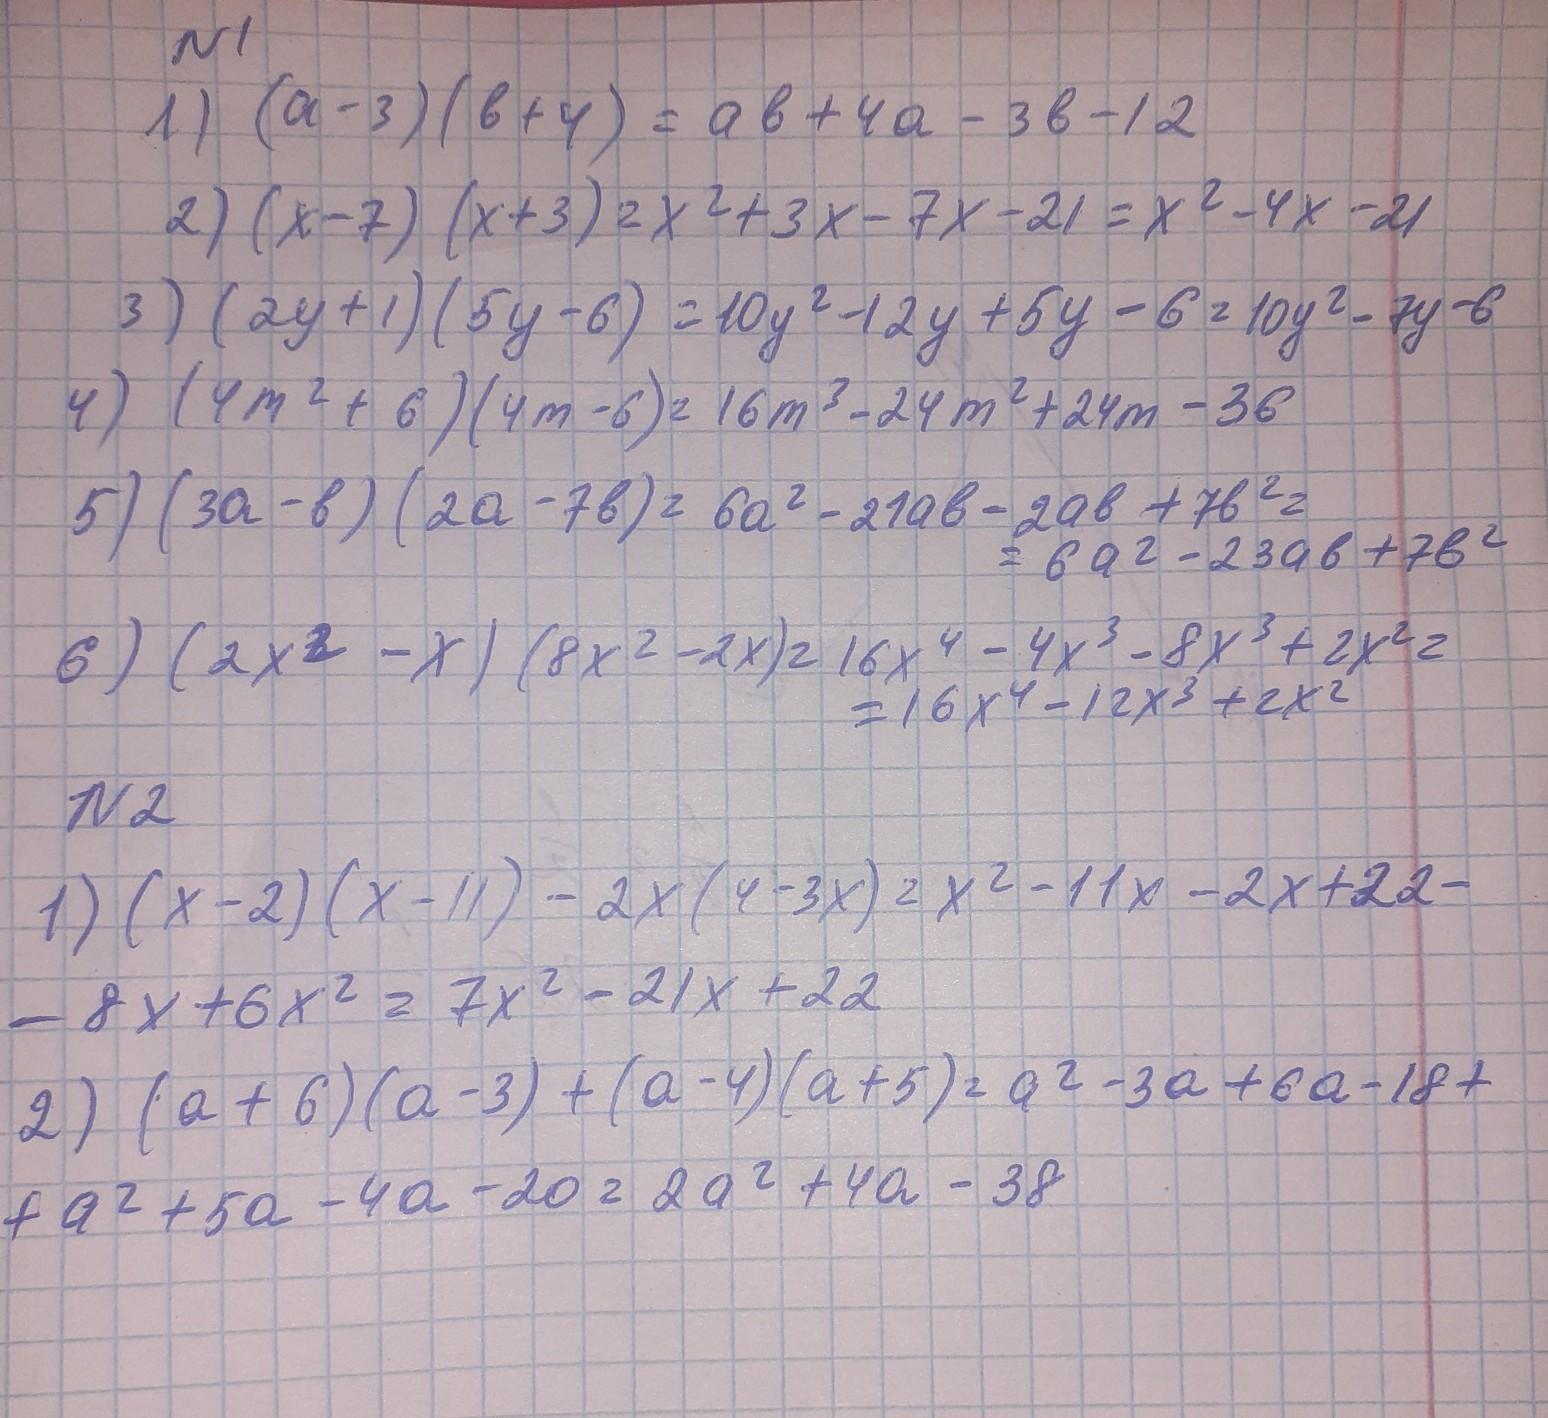 N1
1) (a-3)(b+4) = ab+4a-3b-12
2) (x-7)(x+3)=x²+3x-7x-21=x²-4x-21
3) (2y+1)(5y-6)=10y²-12y+5y-6=10y²-7y-6
4) (4m²+6)(4m-6)=16m³-24m²+24m-36
5) (3a-b)(2a-7b)=6a²-21ab-2ab+7b²=
=6a²-23ab+7b²
6) (2x²-x)(8x²-2x)=16x⁴-4x³-8x³+2x²=
=16x⁴-12x³+2x²
N2
1) (x-2)(x-11)-2x(4-3x)=x²-11x-2x+22-
-8x+6x²=7x²-21x+22
2) (a+6)(a-3)+(a-4)(a+5)=a²-3a+6a-18+
+a²+5a-4a-20=2a²+4a-38